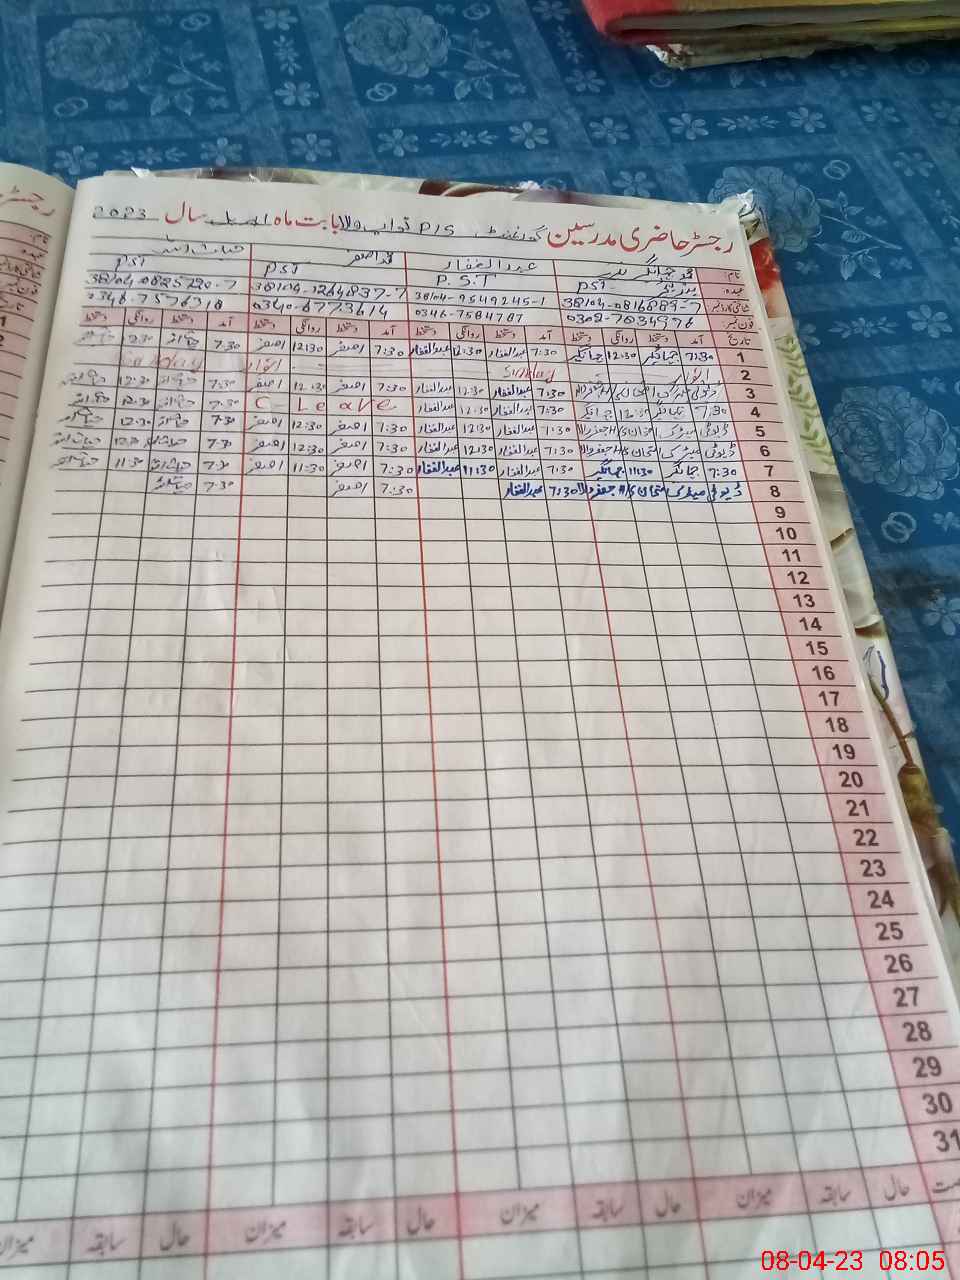 رجسٹر حاضری مدرسین گورنمنٹ P/S نواب والا بابت ماہ اپریل سال 2023
نام: محمد جہانگیر عبدالغفار محمد اصغر
عہدہ: PST P.S.T PST PST
38104-0816889-7 38104-9549245-1 38104-1264837-7 38104-0825720-7
فون نمبر: 0302-7034976 0346-7584787 0340-6773614 0346-7576318
تاریخ آمد دستخط روانگی دستخط آمد دستخط روانگی دستخط آمد دستخط روانگی دستخط آمد دستخط روانگی دستخط
1 7:30 جہانگیر 12:30 جہانگیر 7:30 عبدالغفار 12:30 عبدالغفار 7:30 اصغر 12:30 اصغر 7:30 12:30
2 اتوار Sunday اتوار Sunday
3 ڈیوٹی میٹرک امتحان 7:30 عبدالغفار 12:30 عبدالغفار 7:30 اصغر 12:30 اصغر 7:30 12:30
4 7:30 جہانگیر 12:30 جہانگیر 7:30 عبدالغفار 12:30 عبدالغفار C Leave 7:30 12:30
5 ڈیوٹی میٹرک امتحان 7:30 عبدالغفار 12:30 عبدالغفار 7:30 اصغر 12:30 اصغر 7:30 12:30
6 ڈیوٹی میٹرک امتحان 7:30 عبدالغفار 12:30 عبدالغفار 7:30 اصغر 12:30 اصغر 7:30 12:30
7 7:30 جہانگیر 11:30 جہانگیر 7:30 عبدالغفار 11:30 عبدالغفار 7:30 اصغر 11:30 اصغر 7:30 11:30
8 ڈیوٹی میٹرک امتحان 7:30 عبدالغفار 7:30 اصغر 7:30
9
10
11
12
13
14
15
16
17
18
19
20
21
22
23
24
25
26
27
28
29
30
31
حال سابقہ میزان حال سابقہ میزان حال سابقہ میزان حال سابقہ میزان
08-04-23 08:05